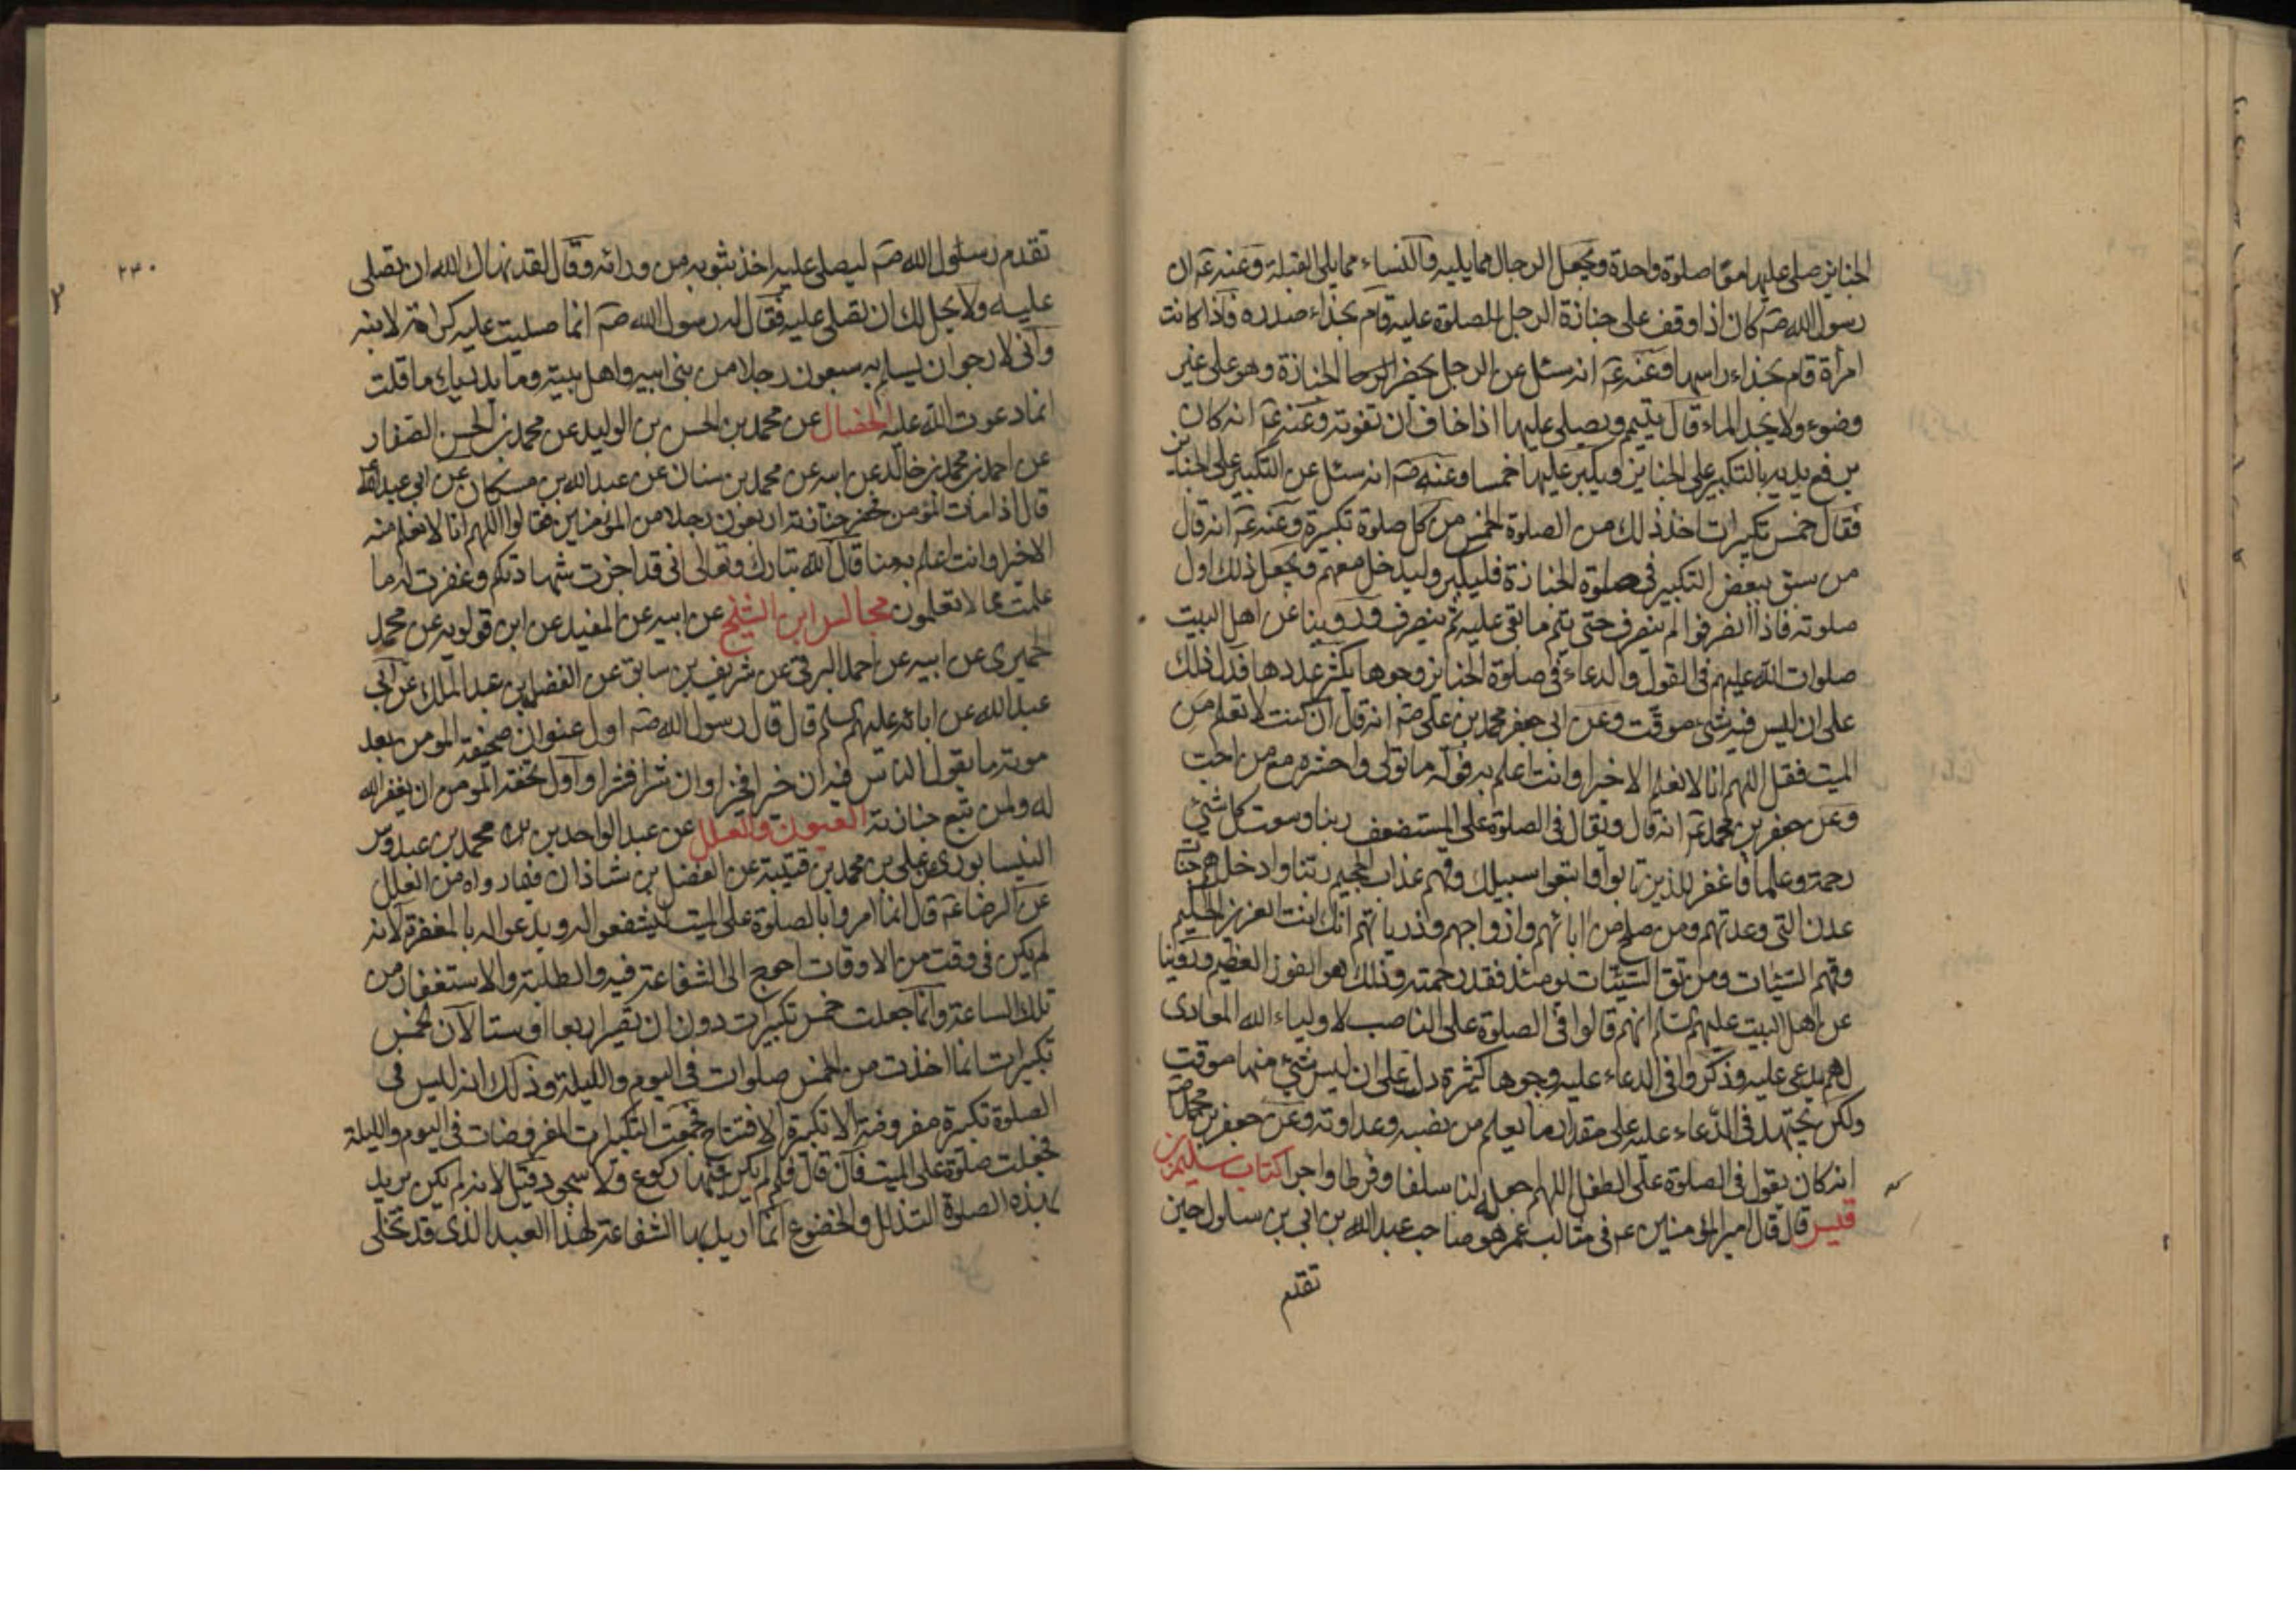 الجنايز صلى عليها معًا صلوة واحدة ويجعل الرجال مما يليه والنساء مما يلي القبلة وعنه عم ان
رسول الله صم كان اذا وقف على جنازة الرجل للصلوة عليه قام بحذاء صدره فاذا كانت
امرأة قام بحذاء راسها وعنه عم انه سئل عن الرجل يحضر الجنازة وهو على غير
وضوء ولا يجد الماء قال يتيمم ويصلي عليها اذا خاف ان تفوته وعنه عم انه كان
يرفع يديه بالتكبير على الجنايز ويكبر عليها خمسا وعنه صم انه سئل عن التكبير على الجنايز
فقال خمس تكبيرات اخذ ذلك من الصلوة الخمس من كل صلوة تكبيرة وعنه عم انه قال
من سبق ببعض التكبير في صلوة الجنازة فليكبر وليدخل معهم ويجعل ذلك اول
صلوته فاذا انصرفوا لم ينصرف حتى يتم ما بقى عليه ثم ينصرف وروينا عن اهل البيت
صلوات الله عليهم في القول والدعاء في صلوة الجنايز وجوها يكثر عددها فدل ذلك
على ان ليس فيه شئ موقت وعن ابي جعفر محمد بن علي صم انه قال ان كنت لا تعلم من
الميت فقل اللهم انا لا نعلم الا خيرا وانت اعلم به فوله ما تولى واحشره مع من احب
وعن جعفر بن محمد عم انه قال ويقال في الصلوة على المستضعف ربنا وسعت كل شئ
رحمة وعلما فاغفر للذين تابوا واتبعوا سبيلك وقهم عذاب الجحيم ربنا وادخلهم جنات
عدن التي وعدتهم ومن صلح من ابائهم وازواجهم وذرياتهم انك انت العزيز الحكيم
وقهم السيئات ومن تق السيئات يومئذ فقد رحمته وذلك هو الفوز العظيم وروينا
عن اهل البيت عليهم السلم انهم قالوا في الصلوة على الناصب لاولياء الله المعادى
لهم يدعى عليه وذكروا في الدعاء عليه وجوها كثيرة دلت على ان ليس شئ منها موقت
ولكن يجتهد في الدعاء عليه على مقدار ما يعلم من نصبه وعداوته وعن جعفر بن محمد صم
انه كان يقول في الصلوة على الطفل اللهم اجعله لنا سلفا وفرطا واجرا كتاب سليم بن
قيس قال قال امير المؤمنين عم في مثالب عمر هو صاحب عبد الله بن ابي بن سلول حين
تقدم
٢٣٠
تقدم رسول الله صم ليصلى عليه اخذ بثوبه من ورائه وقال لقد نهاك الله ان تصلى
عليه ولا يحل لك ان تصلى عليه فقال له رسول الله صم انما صليت عليه كرامة لابنه
وانى لارجو ان يسلم به سبعون رجلا من بنى ابيه واهل بيته وما يدريك ما قلت
انما دعوت الله عليه الخصال عن محمد بن الحسن بن الوليد عن محمد بن الحسن الصفار
عن احمد بن محمد بن خالد عن ابيه عن محمد بن سنان عن عبد الله بن مسكان عن ابي عبد الله
قال اذا مات المؤمن فحضر جنازته اربعون رجلا من المؤمنين فقالوا اللهم انا لا نعلم منه
الا خيرا وانت اعلم به منا قال الله تبارك وتعالى انى قد اجزت شهادتكم وغفرت له ما
علمت مما لا تعلمون مجالس ابن الشيخ عن ابيه عن المفيد عن ابن قولويه عن محمد
الحميرى عن ابيه عن احمد البرقي عن شريف بن سابق عن الفضل بن عبد الملك عن ابي
عبد الله عن ابائه عليهم السلم قال قال رسول الله صم اول عنوان صحيفة المؤمن بعد
موته ما يقول الناس فيه ان خيرا فخيرا وان شرا فشرا واول تحفة المؤمن ان يغفر الله
له ولمن تبع جنازته العيون والعلل عن عبد الواحد بن محمد بن عبدوس
النيسابورى عن علي بن محمد بن قتيبة عن الفضل بن شاذان فيما رواه من العلل
عن الرضا عم قال انما امروا بالصلوة على الميت ليشفعوا له ويدعوا له بالمغفرة لانه
لم يكن في وقت من الاوقات احوج الى الشفاعة فيه والطلبة والاستغفار من
تلك الساعة وانما جعلت خمس تكبيرات دون ان تصير اربعا او ستا لان الخمس
تكبيرات انما اخذت من الخمس صلوات في اليوم والليلة وذلك انه ليس في
الصلوة تكبيرة مفروضة الا تكبيرة الافتتاح فجمعت التكبيرات المفروضات في اليوم والليلة
فجعلت صلوة على الميت فان قال فلم لم يكن فيها ركوع ولا سجود قيل لانه لم يكن يريد
بهذه الصلوة التذلل والخضوع انما اريد بها الشفاعة لهذا العبد الذى قد تخلى